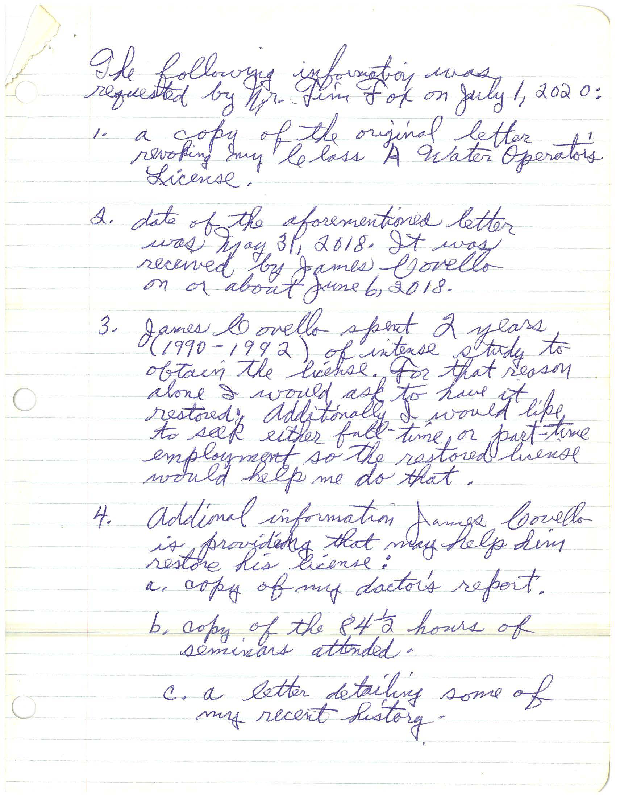 The following information was
requested by Mr. Tim Fox on July 1, 2020:
1. a copy of the original letter
revoking my Class A Water Operator's
License.
2. date of the aforementioned letter
was May 31, 2018. It was
received by James Covello
on or about June 6, 2018.
3. James Covello spent 2 years
(1990-1992) of intense study to
obtain the license. For that reason
alone I would ask to have it
restored. Additonally I would like
to seek either full-time, or part-time
employment so the restored license
would help me do that.
4. Addional information James Covello
is providing that may help him
restore his license:
a. copy of my doctor's report.
b. copy of the 84 1/2 hours of
seminars attended.
c. a letter detailing some of
my recent history.